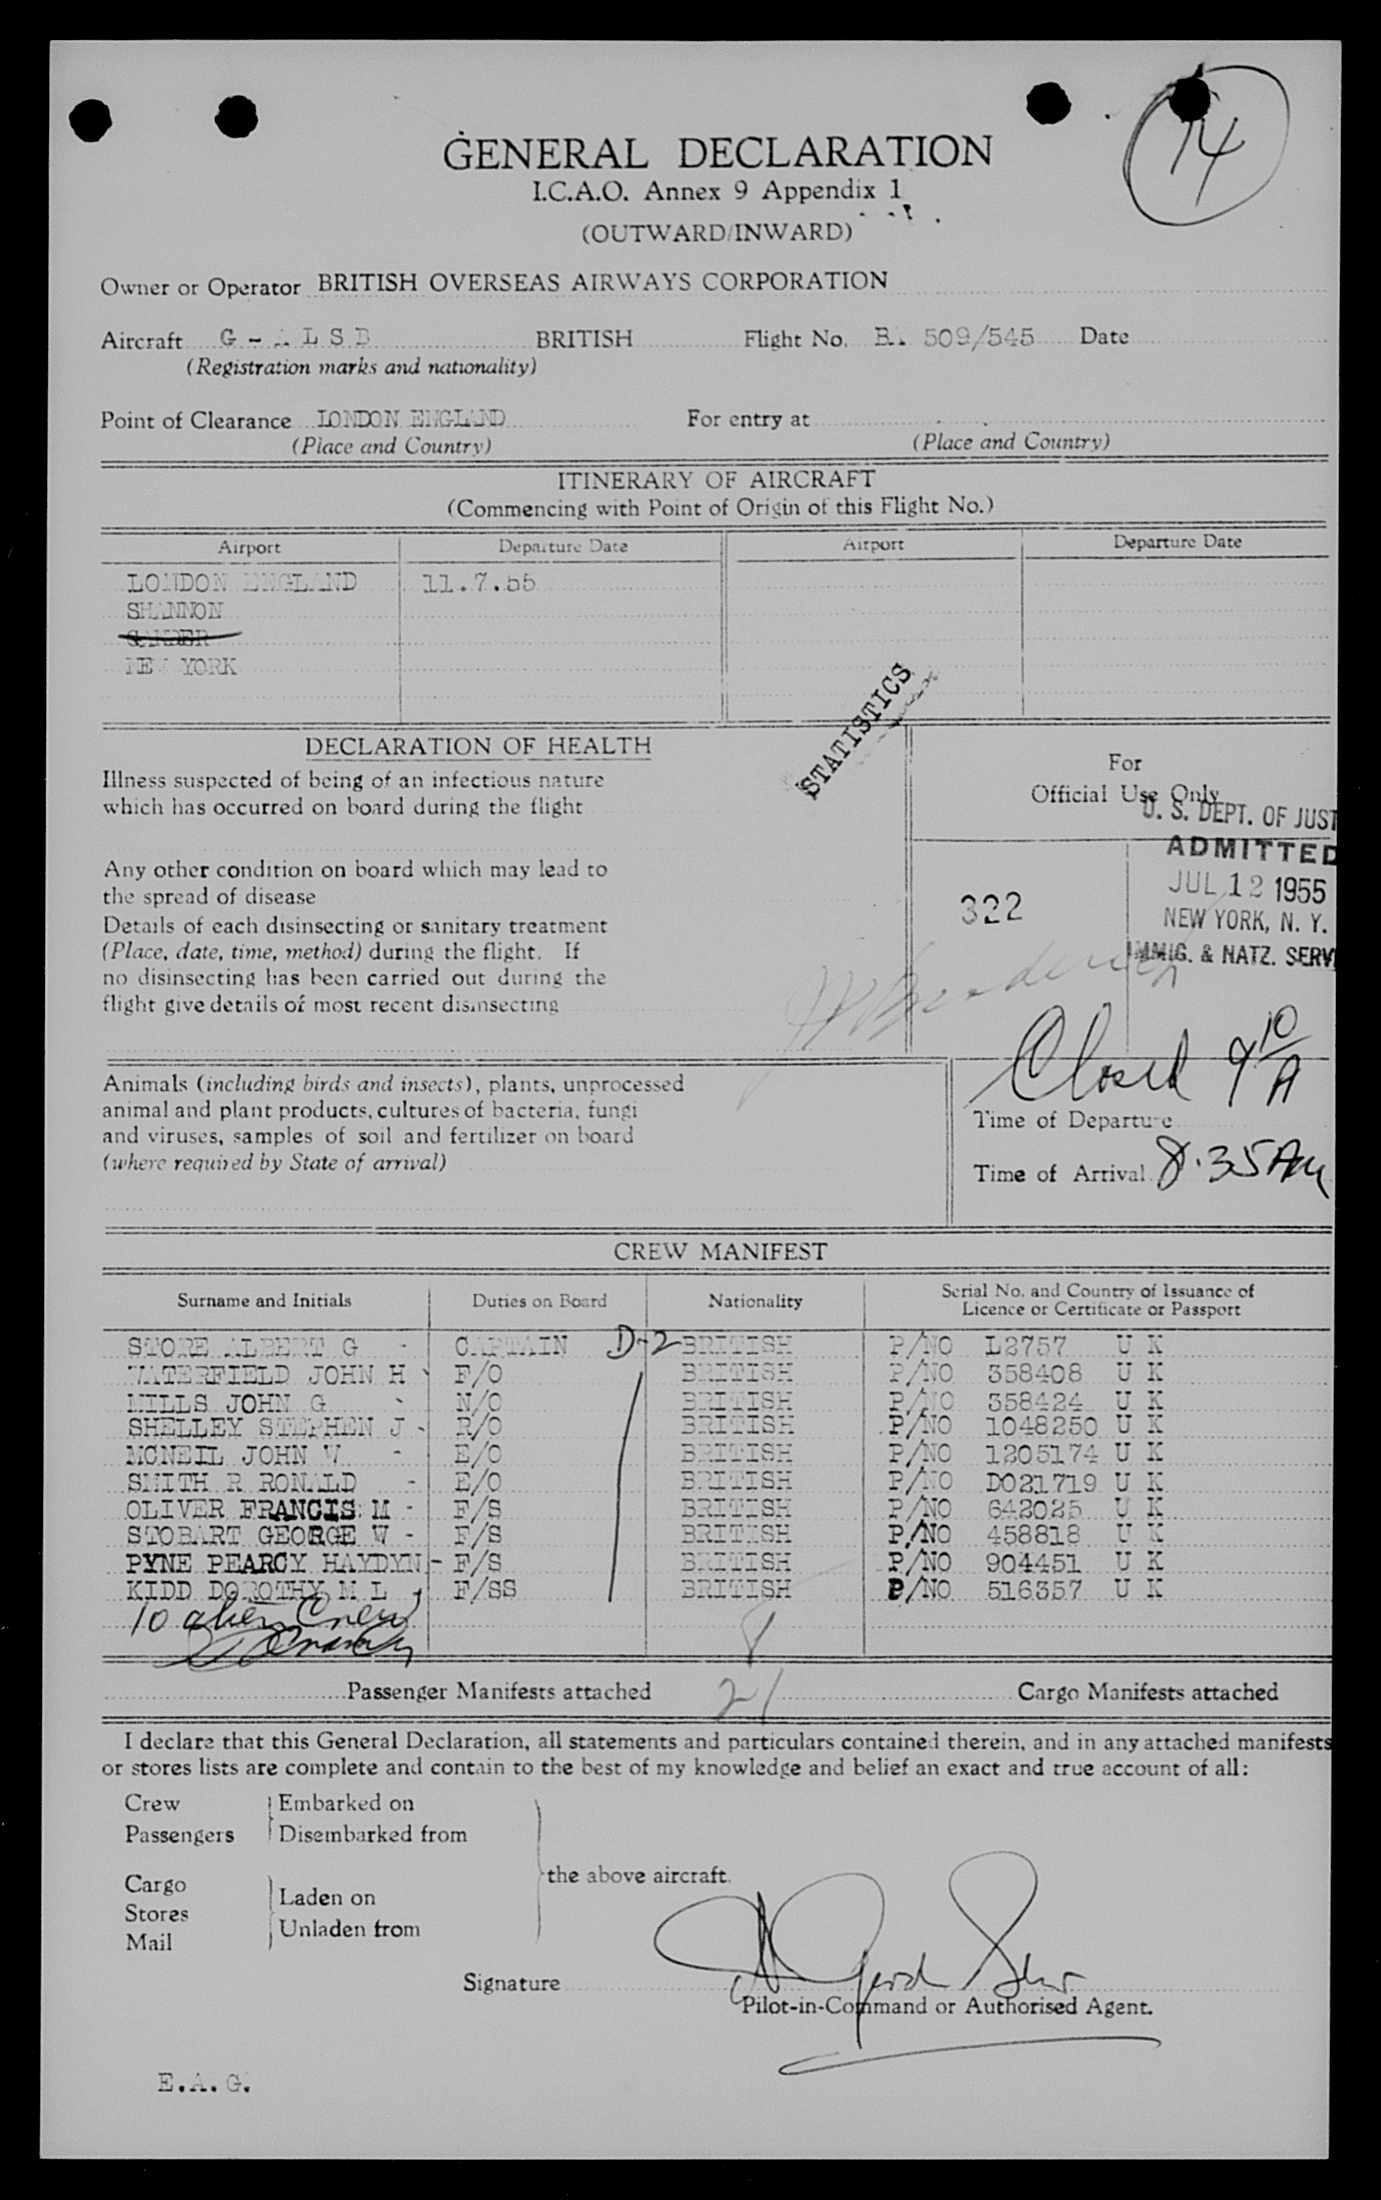 14
GENERAL DECLARATION
I.C.A.O. Annex 9 Appendix 1
(OUTWARD/INWARD)
Owner or Operator BRITISH OVERSEAS AIRWAYS CORPORATION
Aircraft G - A L S D BRITISH Flight No. BA 509/545 Date
(Registration marks and nationality)
Point of Clearance LONDON ENGLAND For entry at
(Place and Country) (Place and Country)
ITINERARY OF AIRCRAFT
(Commencing with Point of Origin of this Flight No.)
Airport Departure Date Airport Departure Date
LONDON ENGLAND 11.7.55
SHANNON
GANDER
NEW YORK
STATISTICS
DECLARATION OF HEALTH
Illness suspected of being of an infectious nature
which has occurred on board during the flight
Any other condition on board which may lead to
the spread of disease
Details of each disinsecting or sanitary treatment
(Place, date, time, method) during the flight. If
no disinsecting has been carried out during the
flight give details of most recent disinsecting
For
Official Use Only
U. S. DEPT. OF JUST
ADMITTED
JUL 12 1955
NEW YORK, N. Y.
IMMIG. & NATZ. SERV
322
Closed 9 10/A
Animals (including birds and insects), plants, unprocessed
animal and plant products, cultures of bacteria, fungi
and viruses, samples of soil and fertilizer on board
(where required by State of arrival)
Time of Departure
Time of Arrival 8.35 AM
CREW MANIFEST
Surname and Initials Duties on Board Nationality Serial No. and Country of Issuance of
Licence or Certificate or Passport
STORE ALBERT G - CAPTAIN D-2 BRITISH P/NO L2757 U K
WATERFIELD JOHN H F/O BRITISH P/NO 358408 U K
MILLS JOHN G N/O BRITISH P/NO 358424 U K
SHELLEY STEPHEN J - R/O BRITISH P/NO 1048250 U K
MCNEIL JOHN W - E/O BRITISH P/NO 1205174 U K
SMITH R RONALD - E/O BRITISH P/NO DO21719 U K
OLIVER FRANCIS M - F/S BRITISH P/NO 642025 U K
STOBART GEORGE W - F/S BRITISH P/NO 458818 U K
PYNE PEARCY HAYDYN - F/S BRITISH P/NO 904451 U K
KIDD DOROTHY M L F/SS BRITISH P/NO 516357 U K
10 alien Crew
Passenger Manifests attached 21 Cargo Manifests attached
I declare that this General Declaration, all statements and particulars contained therein, and in any attached manifests
or stores lists are complete and contain to the best of my knowledge and belief an exact and true account of all:
Crew Embarked on
Passengers Disembarked from
the above aircraft.
Cargo
Laden on
Stores
Unladen from
Mail
Signature
Pilot-in-Command or Authorised Agent.
E.A.G.